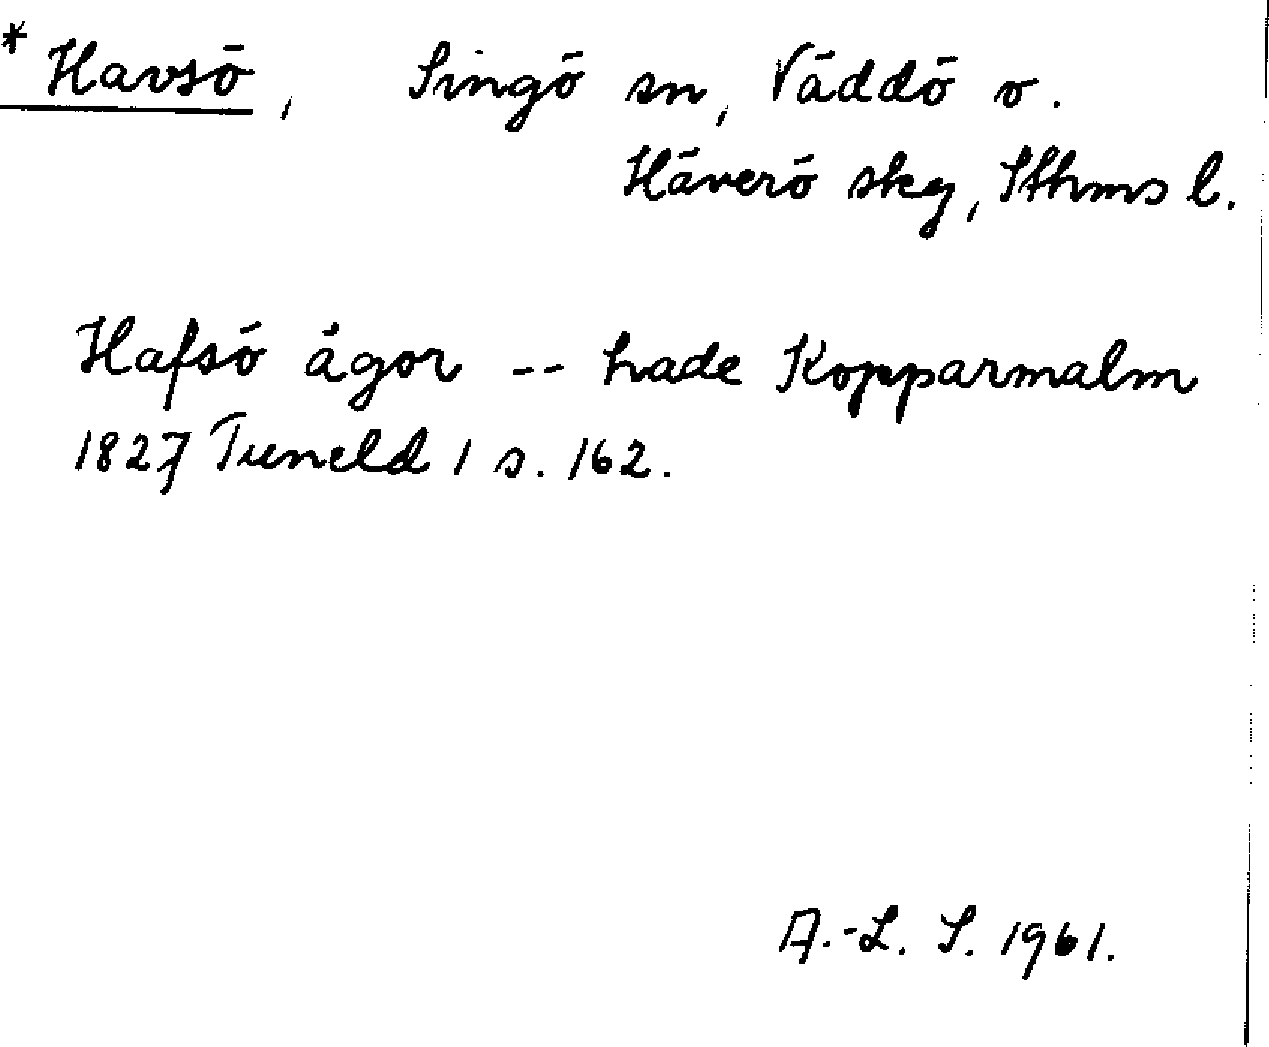 * Havsö, Singö sn, Väddö o.
Häverö skg, Sthms l.
Hafsö ägor -- hade Kopparmalm
1827 Tuneld 1 s. 162.
A.-L. S. 1961.